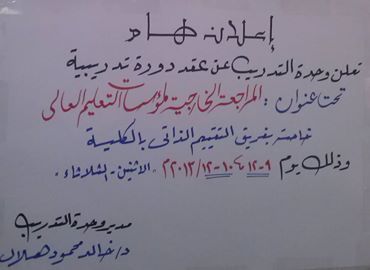 إعلان هام
تعلن وحدة التدريب عن عقد دورة تدريبية
تحت عنوان : المراجعة الخارجية لمؤسسات التعليم العالى
خاصة بفريق التقييم الذاتى بالكلية
وذلك يوم ٩-١٢ ، ١٠-١٢/٢٠١٣ م . الاثنين - الثلاثاء .
مدير وحدة التدريب
د/ خالد محمود هلال